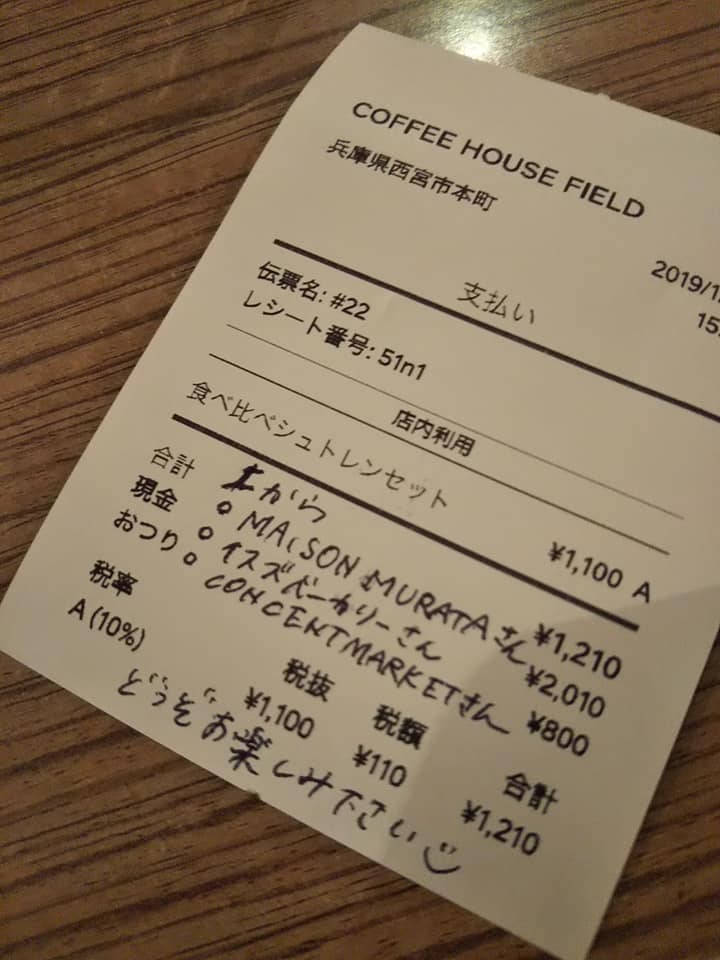 COFFEE HOUSE FIELD
兵庫県西宮市本町
2019/1
15
支払い
伝票名: #22
レシート番号: 51n1
店内利用
食べ比べシュトレンセット
¥1,100 A
合計 ¥1,210
現金 ¥2,010
おつり ¥800
上から
○ MAISON MURATAさん
○ イスズベーカリーさん
○ CONCENTMARKETさん
税率 税抜 税額 合計
A (10%) ¥1,100 ¥110 ¥1,210
どうぞお楽しみ下さい